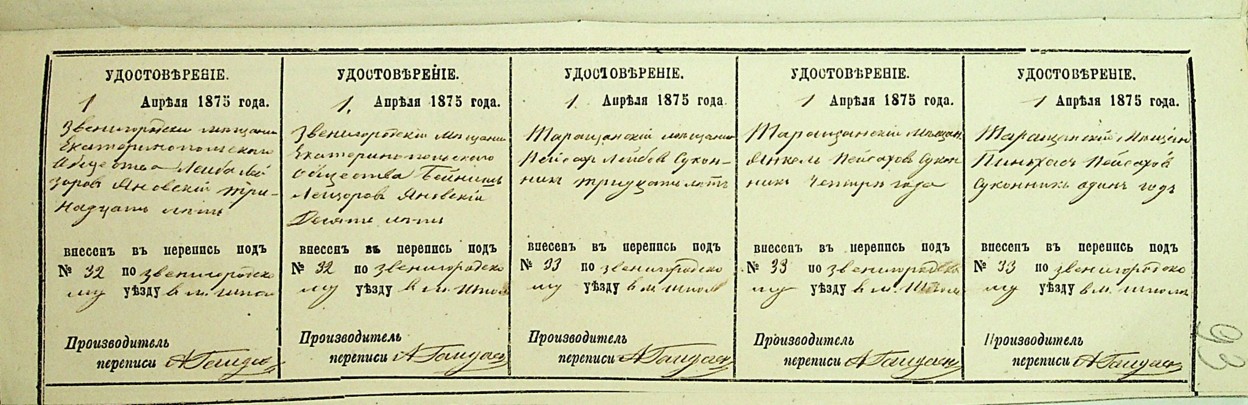 УДОСТОВѢРЕНІЕ.
1 Апрѣля 1875 года.
Звенигородскій мѣщанинъ
Екатеринопольскаго
Общества Лейба Лей
зоровъ Яновскій три-
надцать лѣтъ
внесенъ въ перепись подъ
№ 32 по звенигородско
му уѣзду в м. Шпола
Производитель
переписи
УДОСТОВѢРЕНІЕ.
1. Апрѣля 1875 года.
Звенигородскій мѣщанин
Екатеринопольскаго
Общества Бейнишъ
Лейзоровъ Яновскій
Десять лѣтъ
внесенъ въ перепись подъ
№ 32 по звенигородско
му уѣзду в м. Шпола
Производитель
переписи
УДОСТОВѢРЕНІЕ.
1 Апрѣля 1875 года.
Таращанскій мѣщанин
Пейсах Лейбов Сукон-
никъ тридцать лѣтъ
внесенъ въ перепись подъ
№ 33 по звенигородско
му уѣзду в м. Шпола
Производитель
переписи
УДОСТОВѢРЕНІЕ.
1 Апрѣля 1875 года.
Таращанскій Мѣщан
Янкель Пейсахов Сукон
никъ Четыри года
внесенъ въ перепись подъ
№ 33 по звенигородско
му уѣзду в м. Шпола
Производитель
переписи
УДОСТОВѢРЕНІЕ.
1 Апрѣля 1875 года.
Таращанскій Мѣщан
Пинхасъ Пейсахов
Суконникъ один годъ
внесенъ въ перепись подъ
№ 33 по звенигородско
му уѣзду в м. Шпола
Производитель
переписи
93